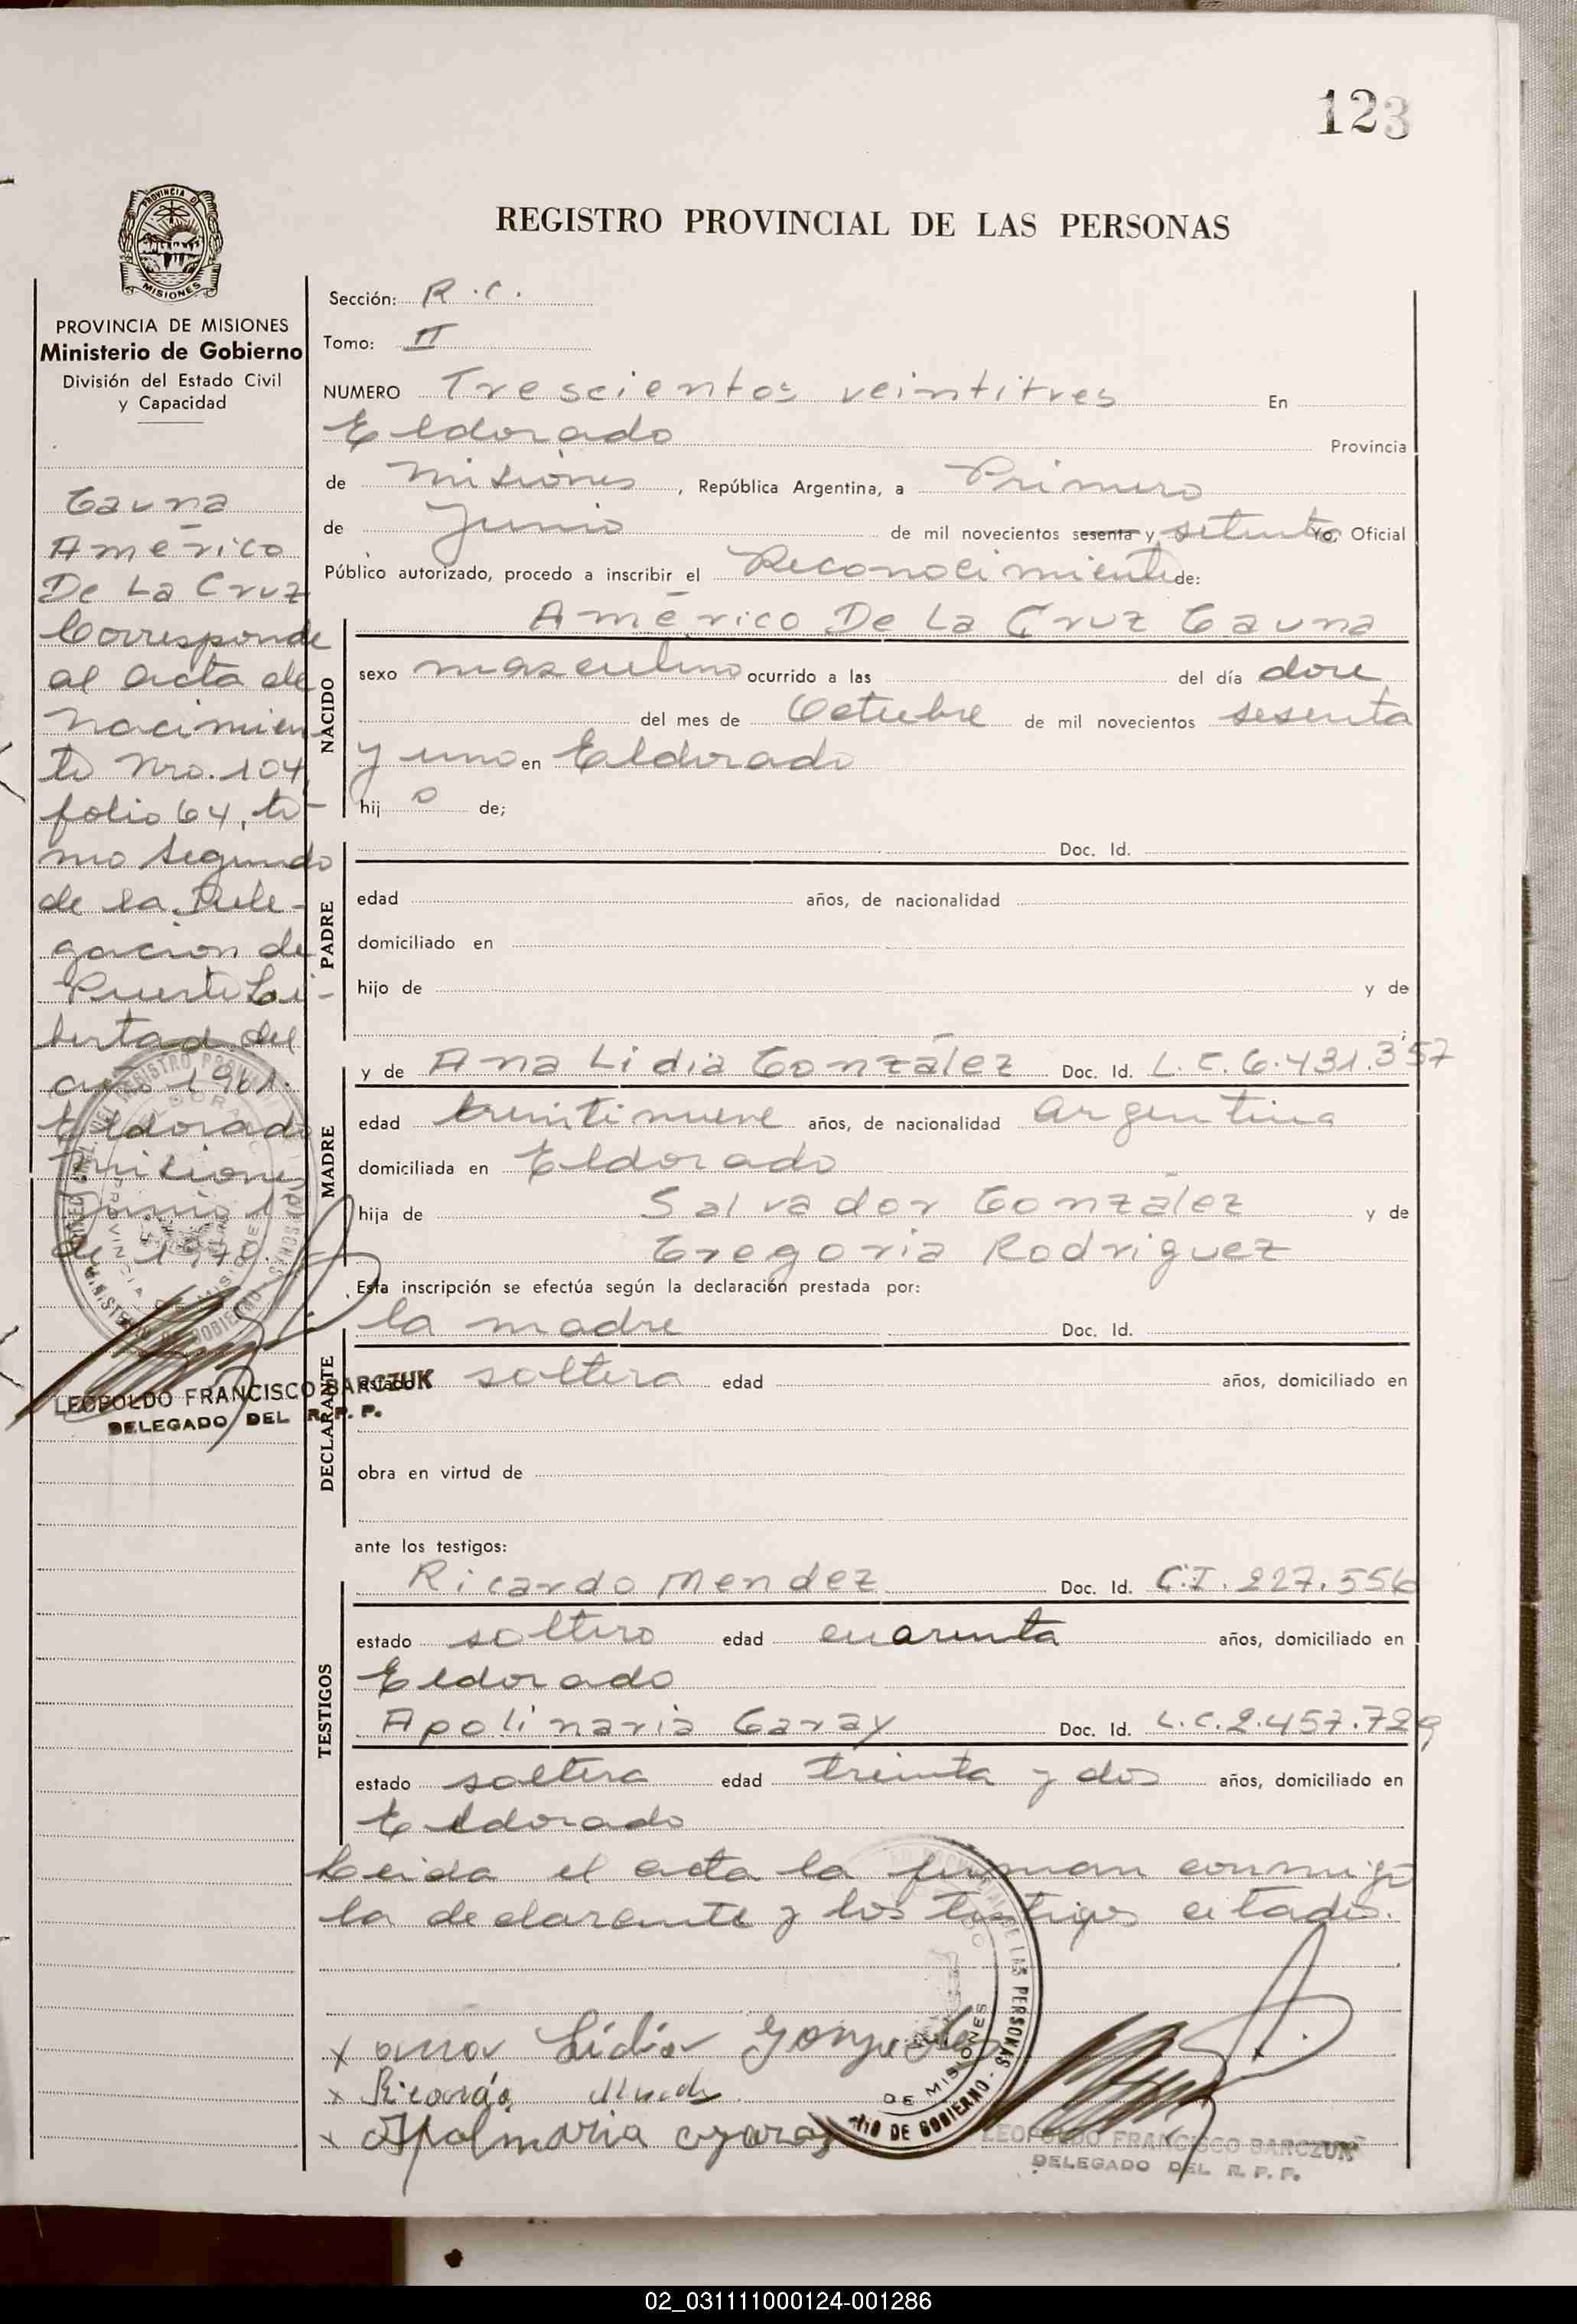 123
PROVINCIA DE MISIONES
Ministerio de Gobierno
División del Estado Civil
y Capacidad
Gauna
Américo
De La Cruz
Corresponde
al acta de
nacimien
to Nro. 104
folio 64, to-
mo segundo
de la Dele-
gacion de
Puerto Li-
bertad del
año 1961.
Eldorado
Misiones
Junio 1
de 1970.
LEOPOLDO FRANCISCO BARCZUK
DELEGADO DEL R. P. P.
REGISTRO PROVINCIAL DE LAS PERSONAS
Sección: R.C.
Tomo: II
NUMERO Trescientos veintitres En
Eldorado Provincia
de Misiones, República Argentina, a Primero
de Junio de mil novecientos sesenta y setenta Yo, Oficial
Público autorizado, procedo a inscribir el Reconocimiento de:
NACIDO
Américo De La Cruz Gauna
sexo masculino ocurrido a las del día doce
del mes de Octubre de mil novecientos sesenta
y uno en Eldorado
hij o de;
PADRE
Doc. Id.
edad años, de nacionalidad
domiciliado en
hijo de y de
MADRE
y de Ana Lidia González Doc. Id. L.C. 6.431.357
edad treintinueve años, de nacionalidad argentina
domiciliada en Eldorado
hija de Salvador González y de
Gregoria Rodriguez
Esta inscripción se efectúa según la declaración prestada por:
DECLARANTE
la madre Doc. Id.
estado soltera edad años, domiciliado en
obra en virtud de
ante los testigos:
TESTIGOS
Ricardo Mendez Doc. Id. C.I. 227.556
estado soltero edad cuarenta años, domiciliado en
Eldorado
Apolinaria Garay Doc. Id. L.C. 2.457.729
estado soltera edad treinta y dos años, domiciliado en
Eldorado
Leida el acta la firman conmigo
la declarante y los testigos citados.
x ana Lidia Gonzalez
x Ricardo
x Apolinaria
DE MISIONES
DE GOBIERNO
LEOPOLDO FRANCISCO BARCZUK
DELEGADO DEL R. P. P.
02_031111000124-001286